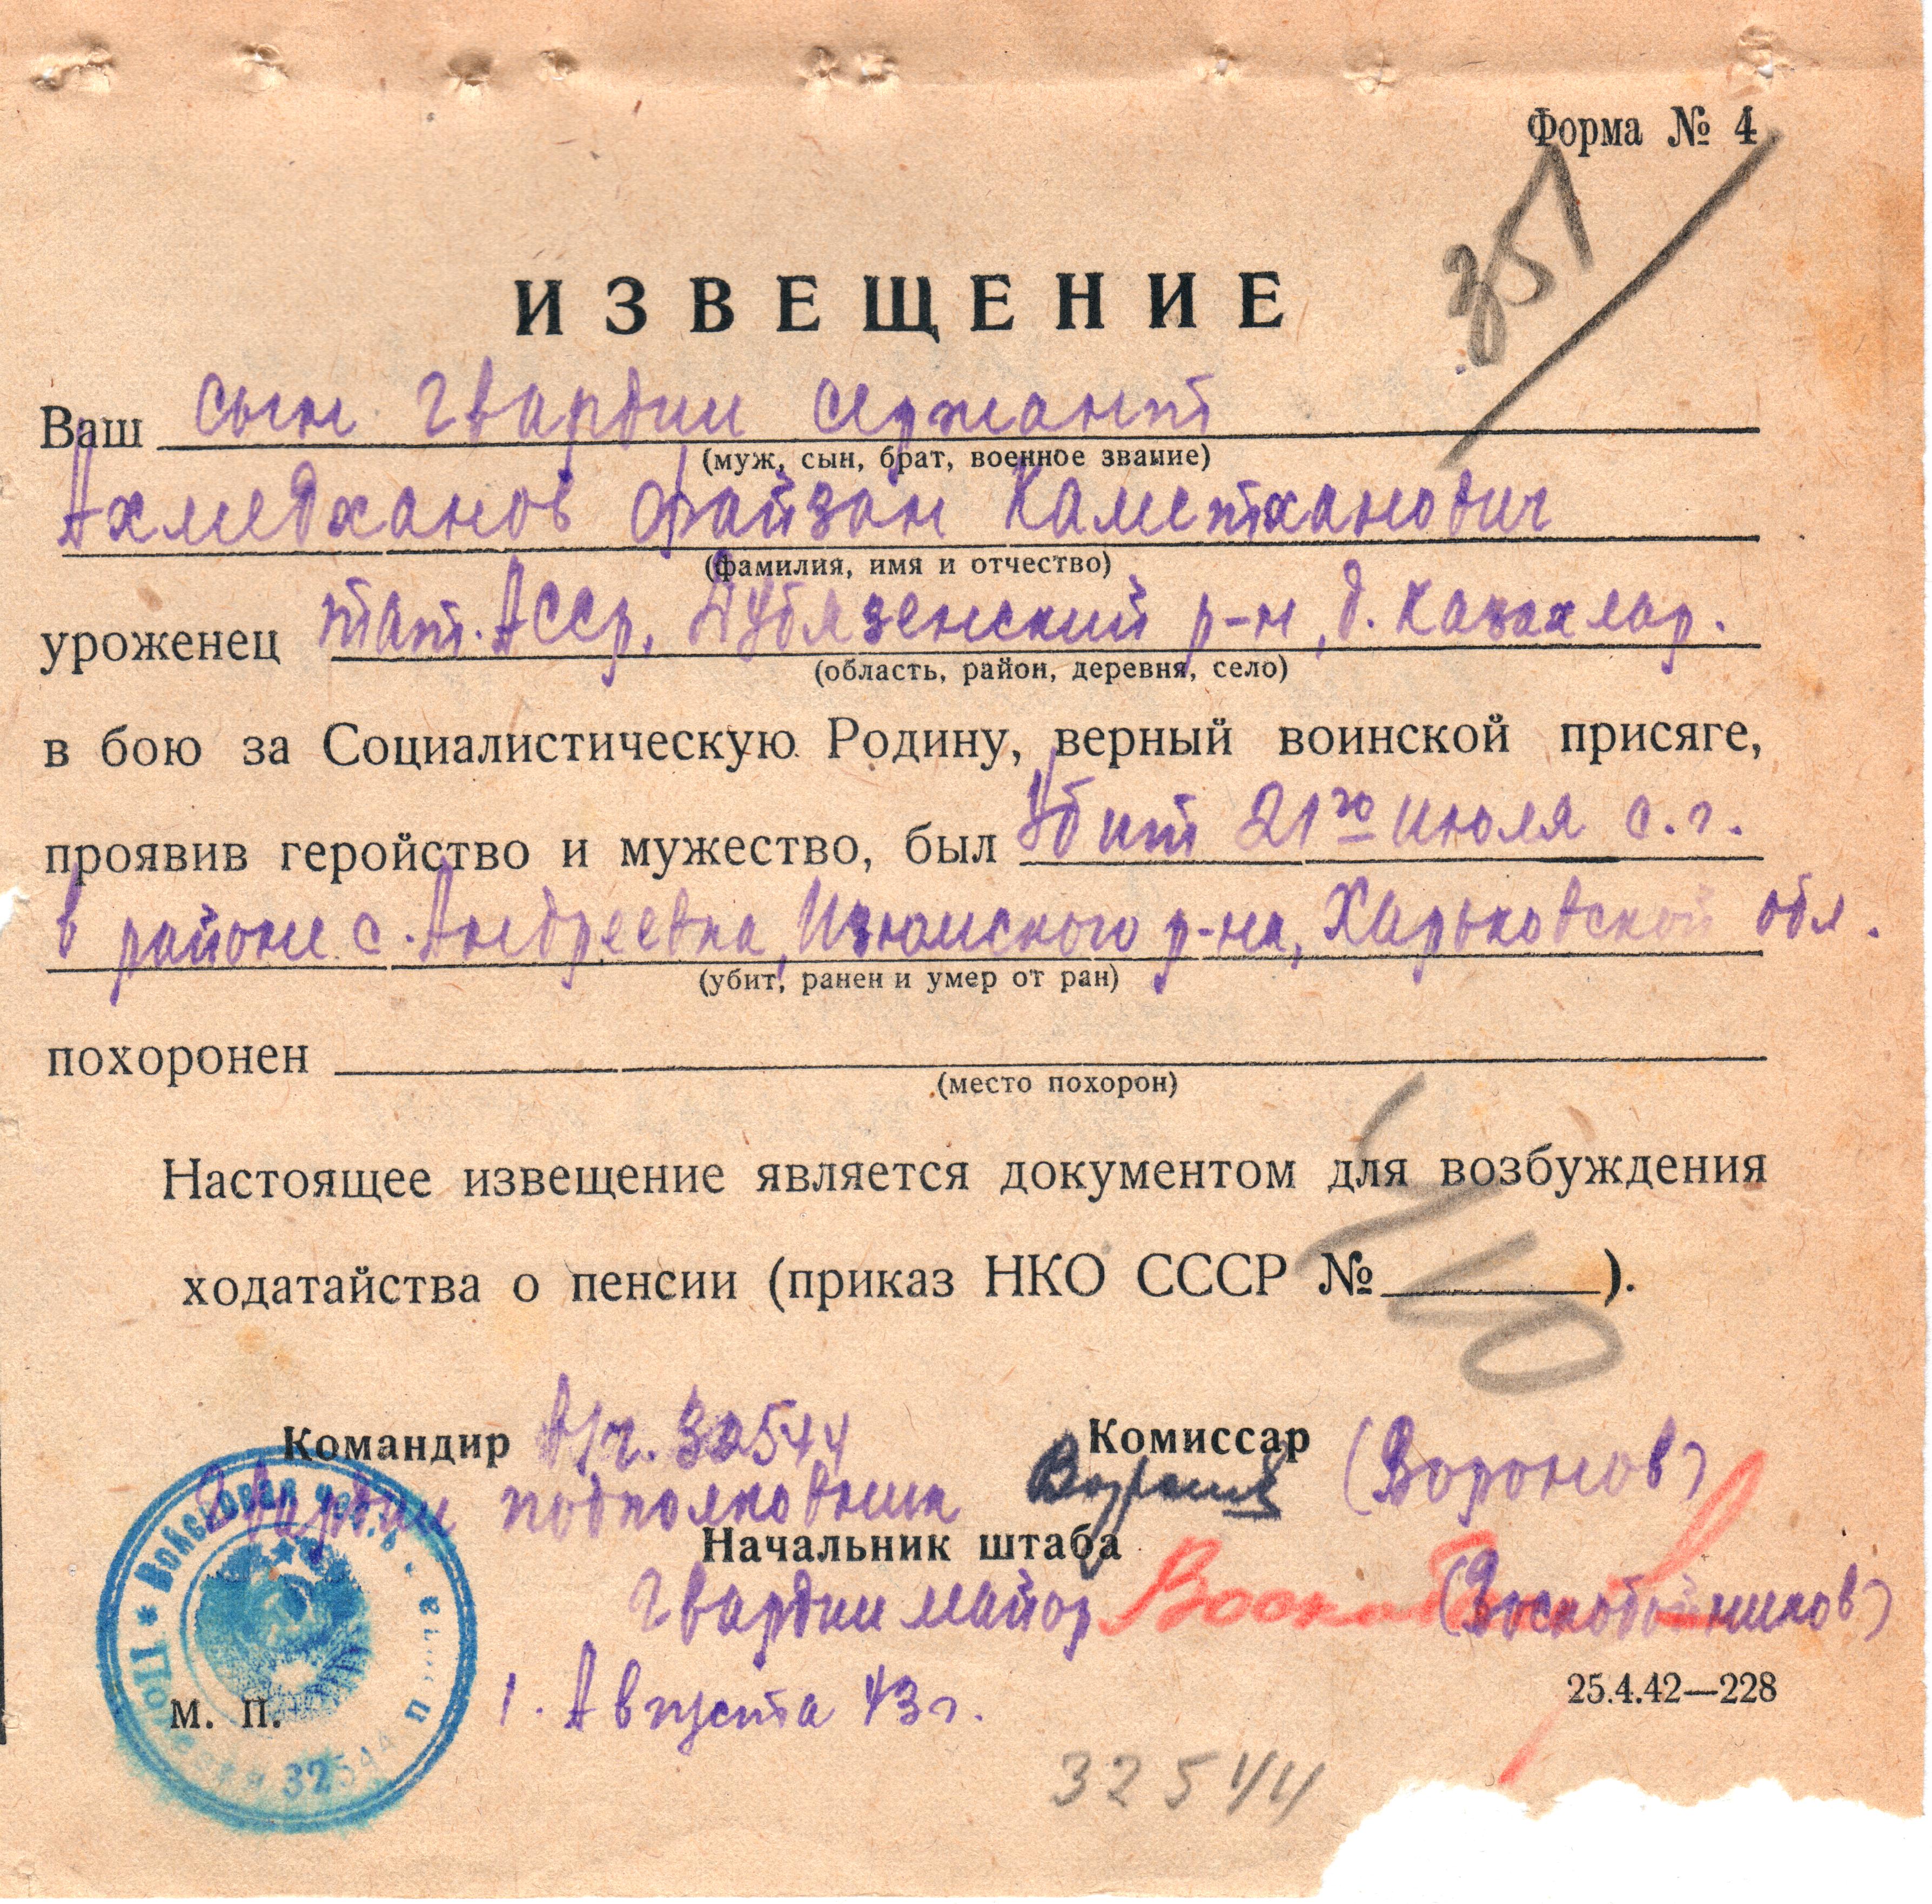 Форма № 4
351
ИЗВЕЩЕНИЕ
Ваш сын гвардии сержант
(муж, сын, брат, военное звание)
Ахмедханов Файзан Каметханович
(фамилия, имя и отчество)
уроженец тат. АССР, Дубязенский р-н, д. Казахлар.
(область, район, деревня, село)
в бою за Социалистическую Родину, верный воинской присяге,
проявив геройство и мужество, был Убит 21го июля с.г.
в районе с. Андреевка, Изюмского р-на, Харьковской обл.
(убит, ранен и умер от ран)
похоронен
(место похорон)
Настоящее извещение является документом для возбуждения
ходатайства о пенсии (приказ НКО СССР № ).
Командир В/ч. 32544 Комиссар (Воронов)
Гвардии подполковник
Начальник штаба
гвардии майор (Воскобойников)
М. П. 1. Августа 43 г. 25.4.42—228
Войсковая часть Полевая почта 32544
32544